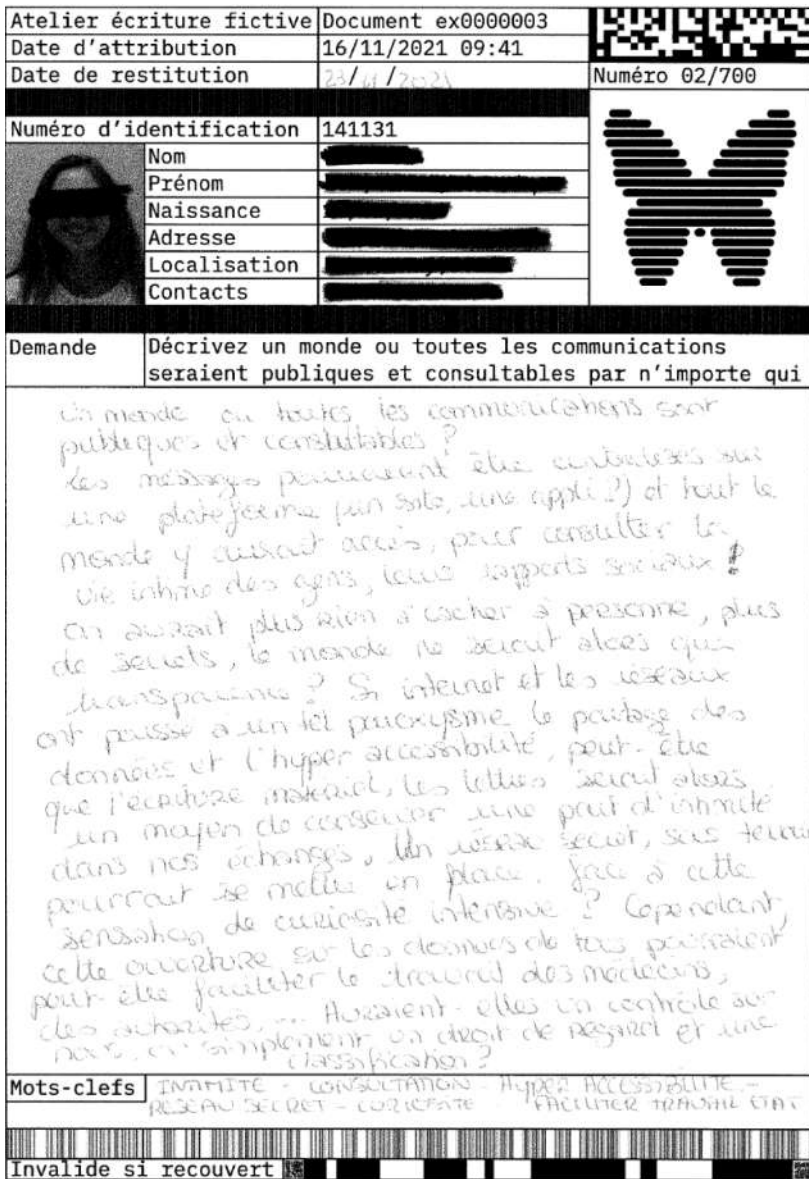 Atelier écriture fictive Document ex0000003
Date d'attribution 16/11/2021 09:41
Date de restitution 23/11/2021 Numéro 02/700
Numéro d'identification 141131
Nom
Prénom
Naissance
Adresse
Localisation
Contacts
Demande Décrivez un monde ou toutes les communications
seraient publiques et consultables par n'importe qui
Un monde ou toutes les communications sont
publiques et consultables ?
Les messages pourraient être centralisés sur
une plateforme (un site, une appli ?) et tout le
monde y aurait accès, pour consulter la
vie intime des gens, leurs rapports sociaux !
On aurait plus rien à cacher à personne, plus
de secrets, le monde ne serait alors que
transparence ? Si internet et les réseaux
ont poussé à un tel paroxysme le partage des
données et l'hyper accessibilité, peut-être
que l'écriture matériel, les lettres serait alors
un moyen de conserver une part d'intimité
dans nos échanges. Un réseau secret, sous terrain
pourrait se mettre en place, face à cette
sensation de curiosité intensive ? Cependant,
cette ouverture sur les données de tous pourraient
peut-être faciliter le travail des médecins,
des autorités, ... Auraient-elles un contrôle sur
nous, ou simplement un droit de regard et une
classification ?
Mots-clefs INTIMITE - CONSULTATION - HYPER ACCESSIBILITE -
RESEAU SECRET - CURIOSITE - FACILITER TRAVAIL ETAT
Invalide si recouvert